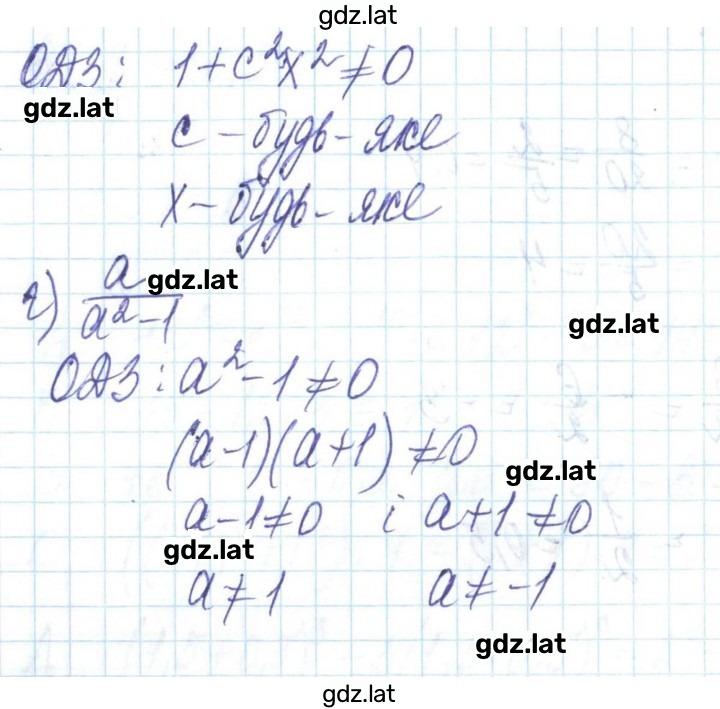 gdz.lat
ОДЗ: 1+c²x²≠0
gdz.lat
c – будь-яке
x – будь-яке
г) a/(a²-1)
gdz.lat
gdz.lat
ОДЗ: a²-1≠0
(a-1)(a+1)≠0
gdz.lat
a-1≠0 і a+1≠0
gdz.lat
a≠1 a≠-1
gdz.lat
gdz.lat